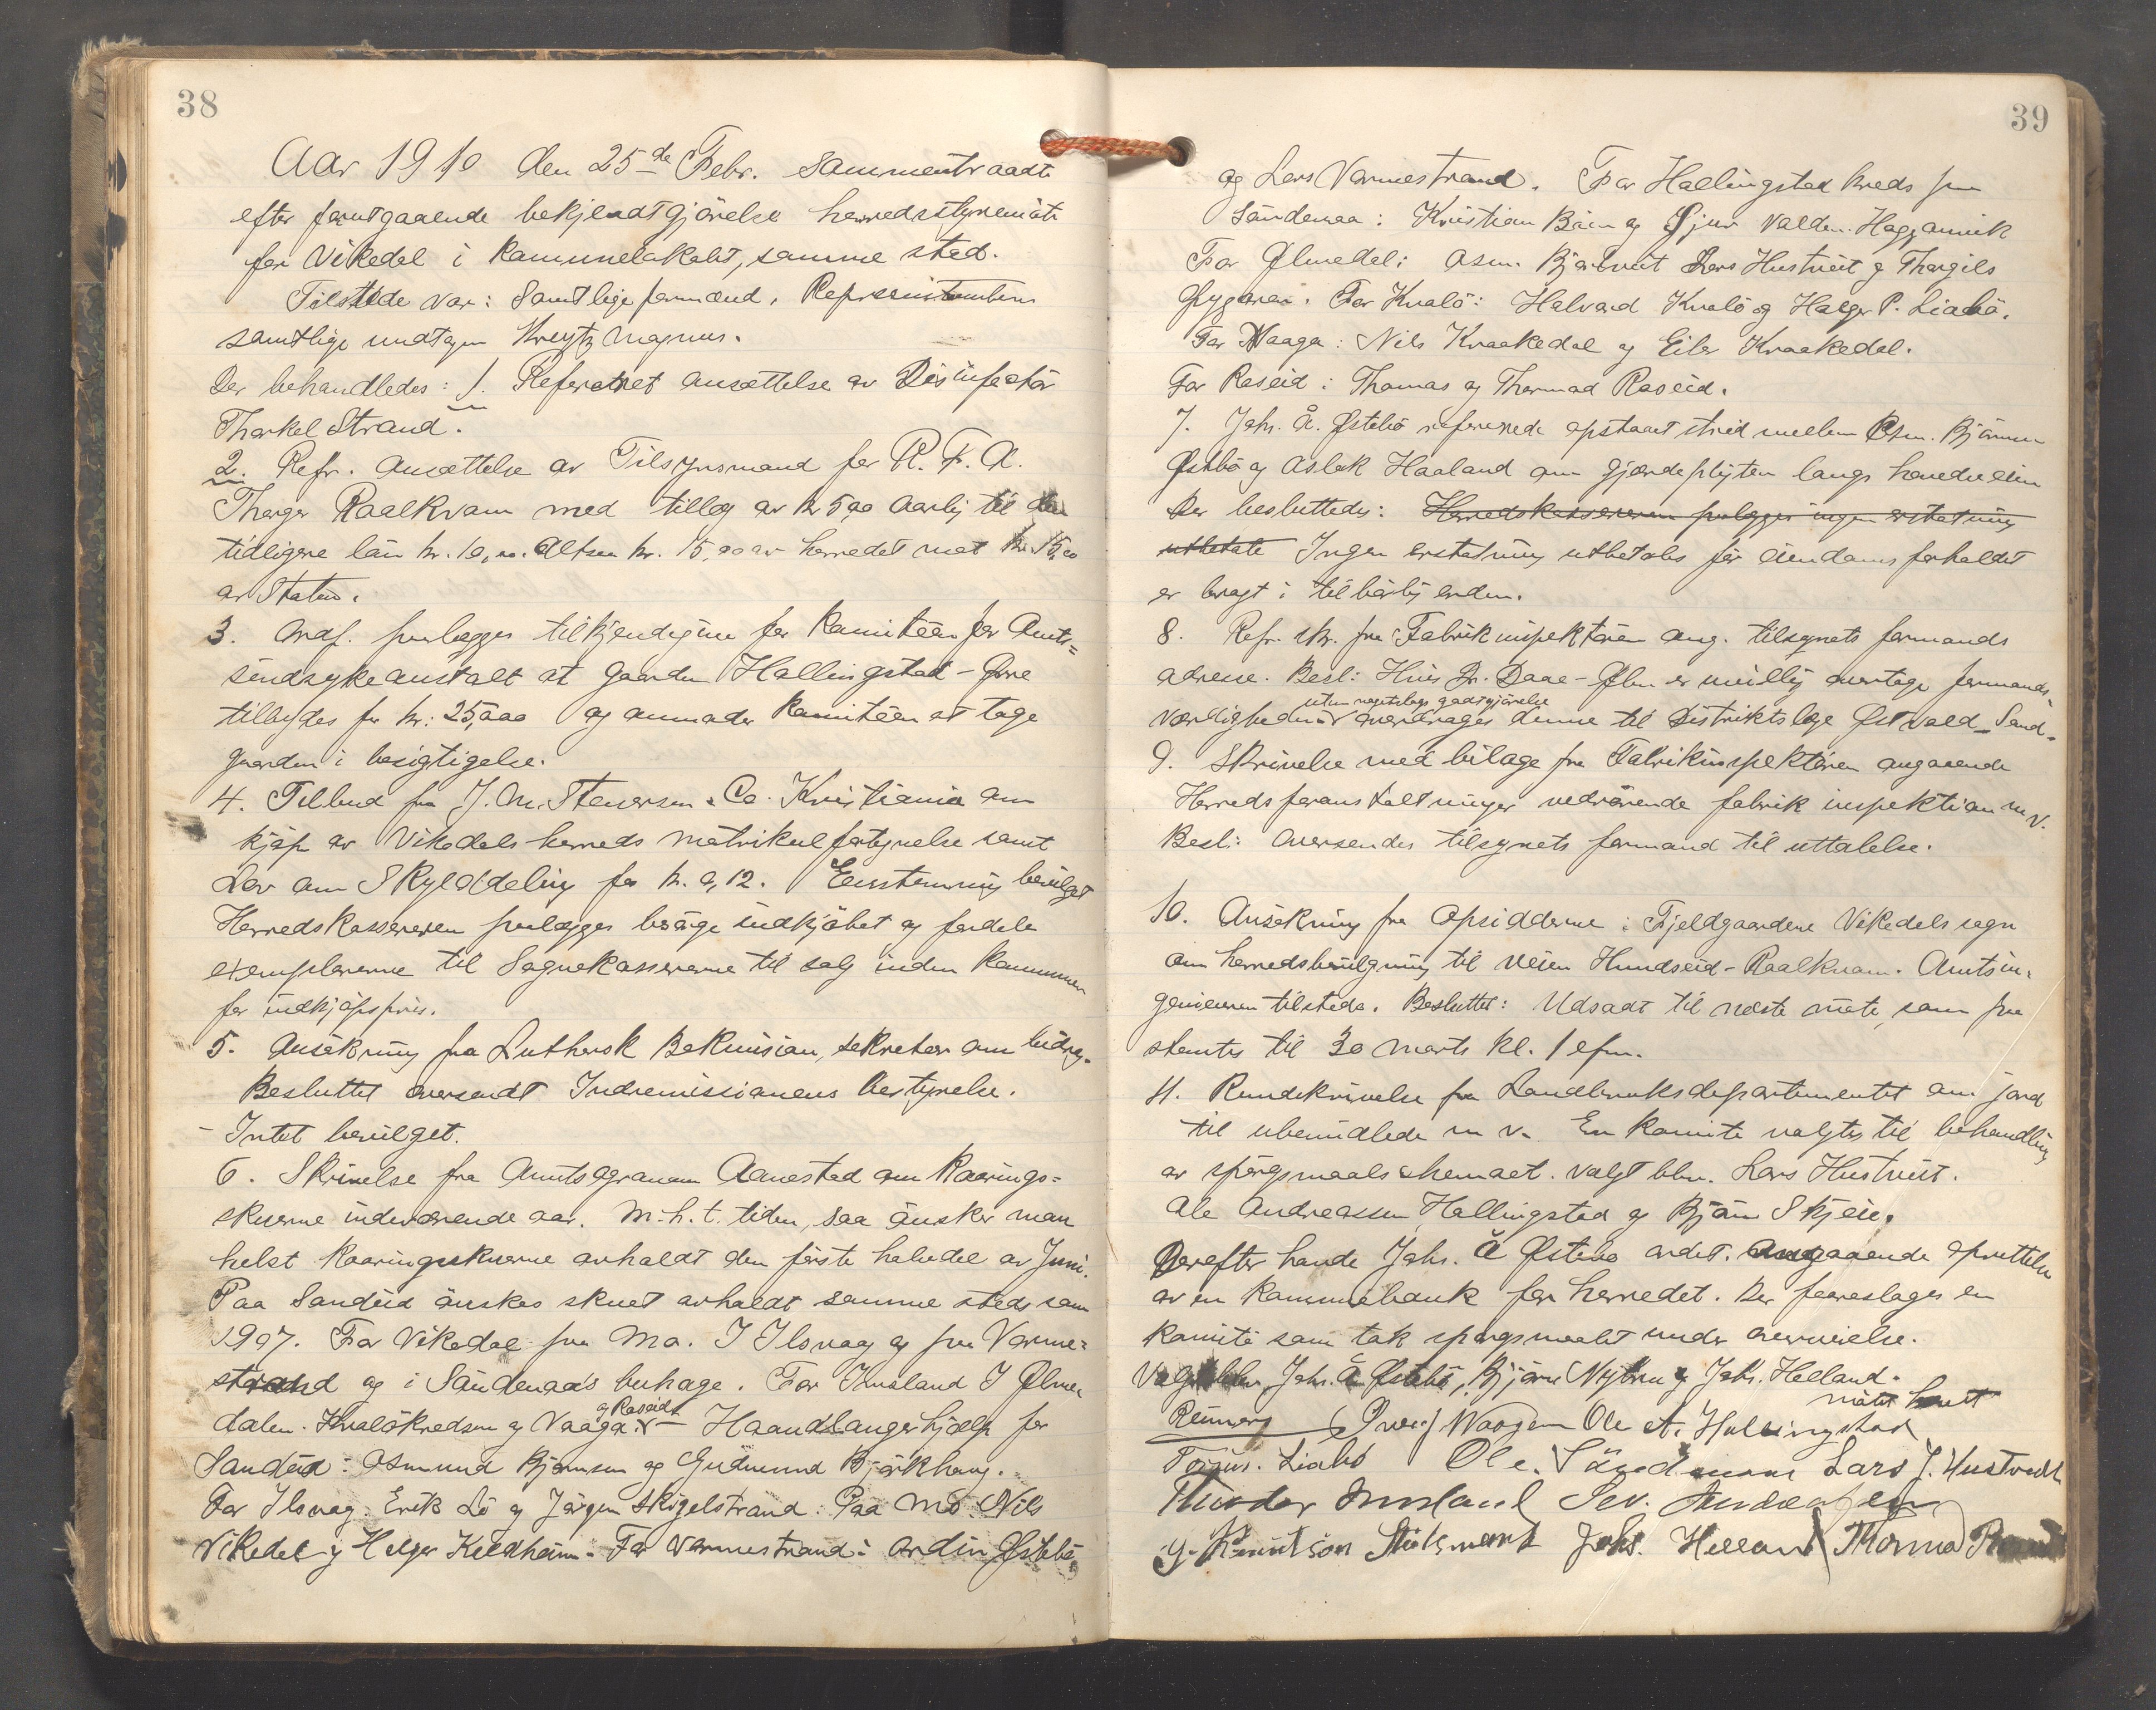 38
Aar 1910 den 25de Febr. sammentraadte
efter forutgaaende bekjendtgjörelse herredsstyremöte
for Vikedal i Kommunelokalet, samme sted.
Tilstede var: Samtlige formænd, Representanterne
samtlige undtagen Kreytz Magnus.
Der behandledes: 1. Referertet ansættelse av Desinfektör
Thorkel Strand.
2. Refr. Ansættelse av Tilsynsmand for R. F. A.
Thorger Raalkvam med tillæg av kr 5,00 aarlig til den
tidligere lön kr. 10,00. Altsaa kr. 15,00 av herredet mot kr. 15,00
av Staten.
3. Ordf. paalægges tilkjendegive for Komitéen for Amts=
sindsykeanstalt at gaarden Hallingstad - Övre
tilbydes for kr: 25,000 og anmoder Komitéen at tage
gaarden i besigtigelse.
4. Tilbud fra J. M. Stenersen & Co. Kristiania om
kjöp av Vikedals herreds matrikul fortegnelse samt
Lov om Skylddeling for kr. 0,12. Enstemmig bevilget
Herredskassereren paalægges besörge indkjöbet og fordele
exemplarerne til Sognekassererne til salg inden Kommunen
for indkjöpspris.
5. Ansökning fra Luthersk Bokmision, sekretær om bidrag.
Besluttet oversendt Indremissionens Bestyrelse.
- Intet bevilget.
6. Skrivelse fra Amtsagronom Aanestad om Kaarings=
skuerne indeværende aar. M. h. t. tiden, saa önsker man
helst Kaaringsskuerne avholdt den förste halvdel av Juni.
Paa Sandeid önskes skuet avholdt samme sted som
1907. For Vikedal paa Mo. I Ilsvag og paa Varme=
strand og i Söndenaa's buhage. For Imsland I Ølme-
dalen. Kvalökredsen og Vaaga og Raseid - Haandlangerhjælp for
Sandeid: Osmund Bjørnsen og Gudmund Bjørkhaug.
For Ilsvag. Erik Lö og Jörgen Skigelstrand. Paa Mo: Nils
Vikedal og Helger Kildheim. For Varmestrand: Ordin Østebö
39
og Lars Varmestrand. For Hallingstad Kreds paa
Söndenaa: Kristian Böen og Gjur Valden. Haggamvik
For Ølmedal: Osm. Bjørtveit Lars Hustveit og Thorgils
Øygaren. For Kvalö: Halvard Kvalö og Holger P. Liabö.
For Vaaga: Nils Kraakedal og Eiler Kraakedal.
For Raseid: Thomas og Thormod Raseid.
7. Johs. Å. Østebö refererede opstaaet strid mellem Osm. Bjørnsen
Østebö og Aslak Haaland om gjærdeplikten langs hovedveien
Der besluttedes: Herredskassereren paalægges ingen erstatning
utbetale Ingen erstatning utbetales för eiendomsforholdet
er bragt i tilbörlig orden.
8. Refr. skr. fra Fabrikinspektören ang. tilsynets formands
adresse. Besl: Hvis Dr. Daae - Ølen er uvillig overtage formands=
værdigheden uten regelslags godtgjörelse overdrages denne til Distriktslæge Østvold - Sand-
9. Skrivelse med bilage fra Fabrikinspektören angaaende
Herredsforanstaltninger vedrörende fabrik inspektion m v.
Besl: Oversendes tilsynets formand til uttalelse.
10. Ansökning fra Opsidderne i Fjeldgaardene Vikedals sogn
om herredsbevilgning til veien Hundseid - Raalkvam. Amtsin-
geniören tilstede. Besluttet: Udsaat til næste möte, som fast
stemtes til 30 Marts kl. 1 efm.
11. Rundskrivelse fra Landbruksdepartementet om jord
til ubemidlede m v. En komite valgtes til behandling
av spörgsmaalsskemaet. Valgt blev. Lars Hustveit.
Ole Andreassen Hallingstad og Björn Skjeie.
Derefter havde Johs. Å Østebö ordet. Angaaende oprettelse
av en Kommunebank for herredet. Der foreslages en
komité som tok spörgsmaalet under overveielse.
Valgt blev Johs. Å Østebö, Bjørn Nybru og Johs. Helland.
Mötet hævet
Reimers (Sver) Waagen Ole A. Hallingstad
Torjus. Liabö Ole. Söndenaa Lars J. Hustvedt
Thirder Imsland Sev. Andersen
G. Knutson Stölsmark Johs. Helland Thormod Raseid